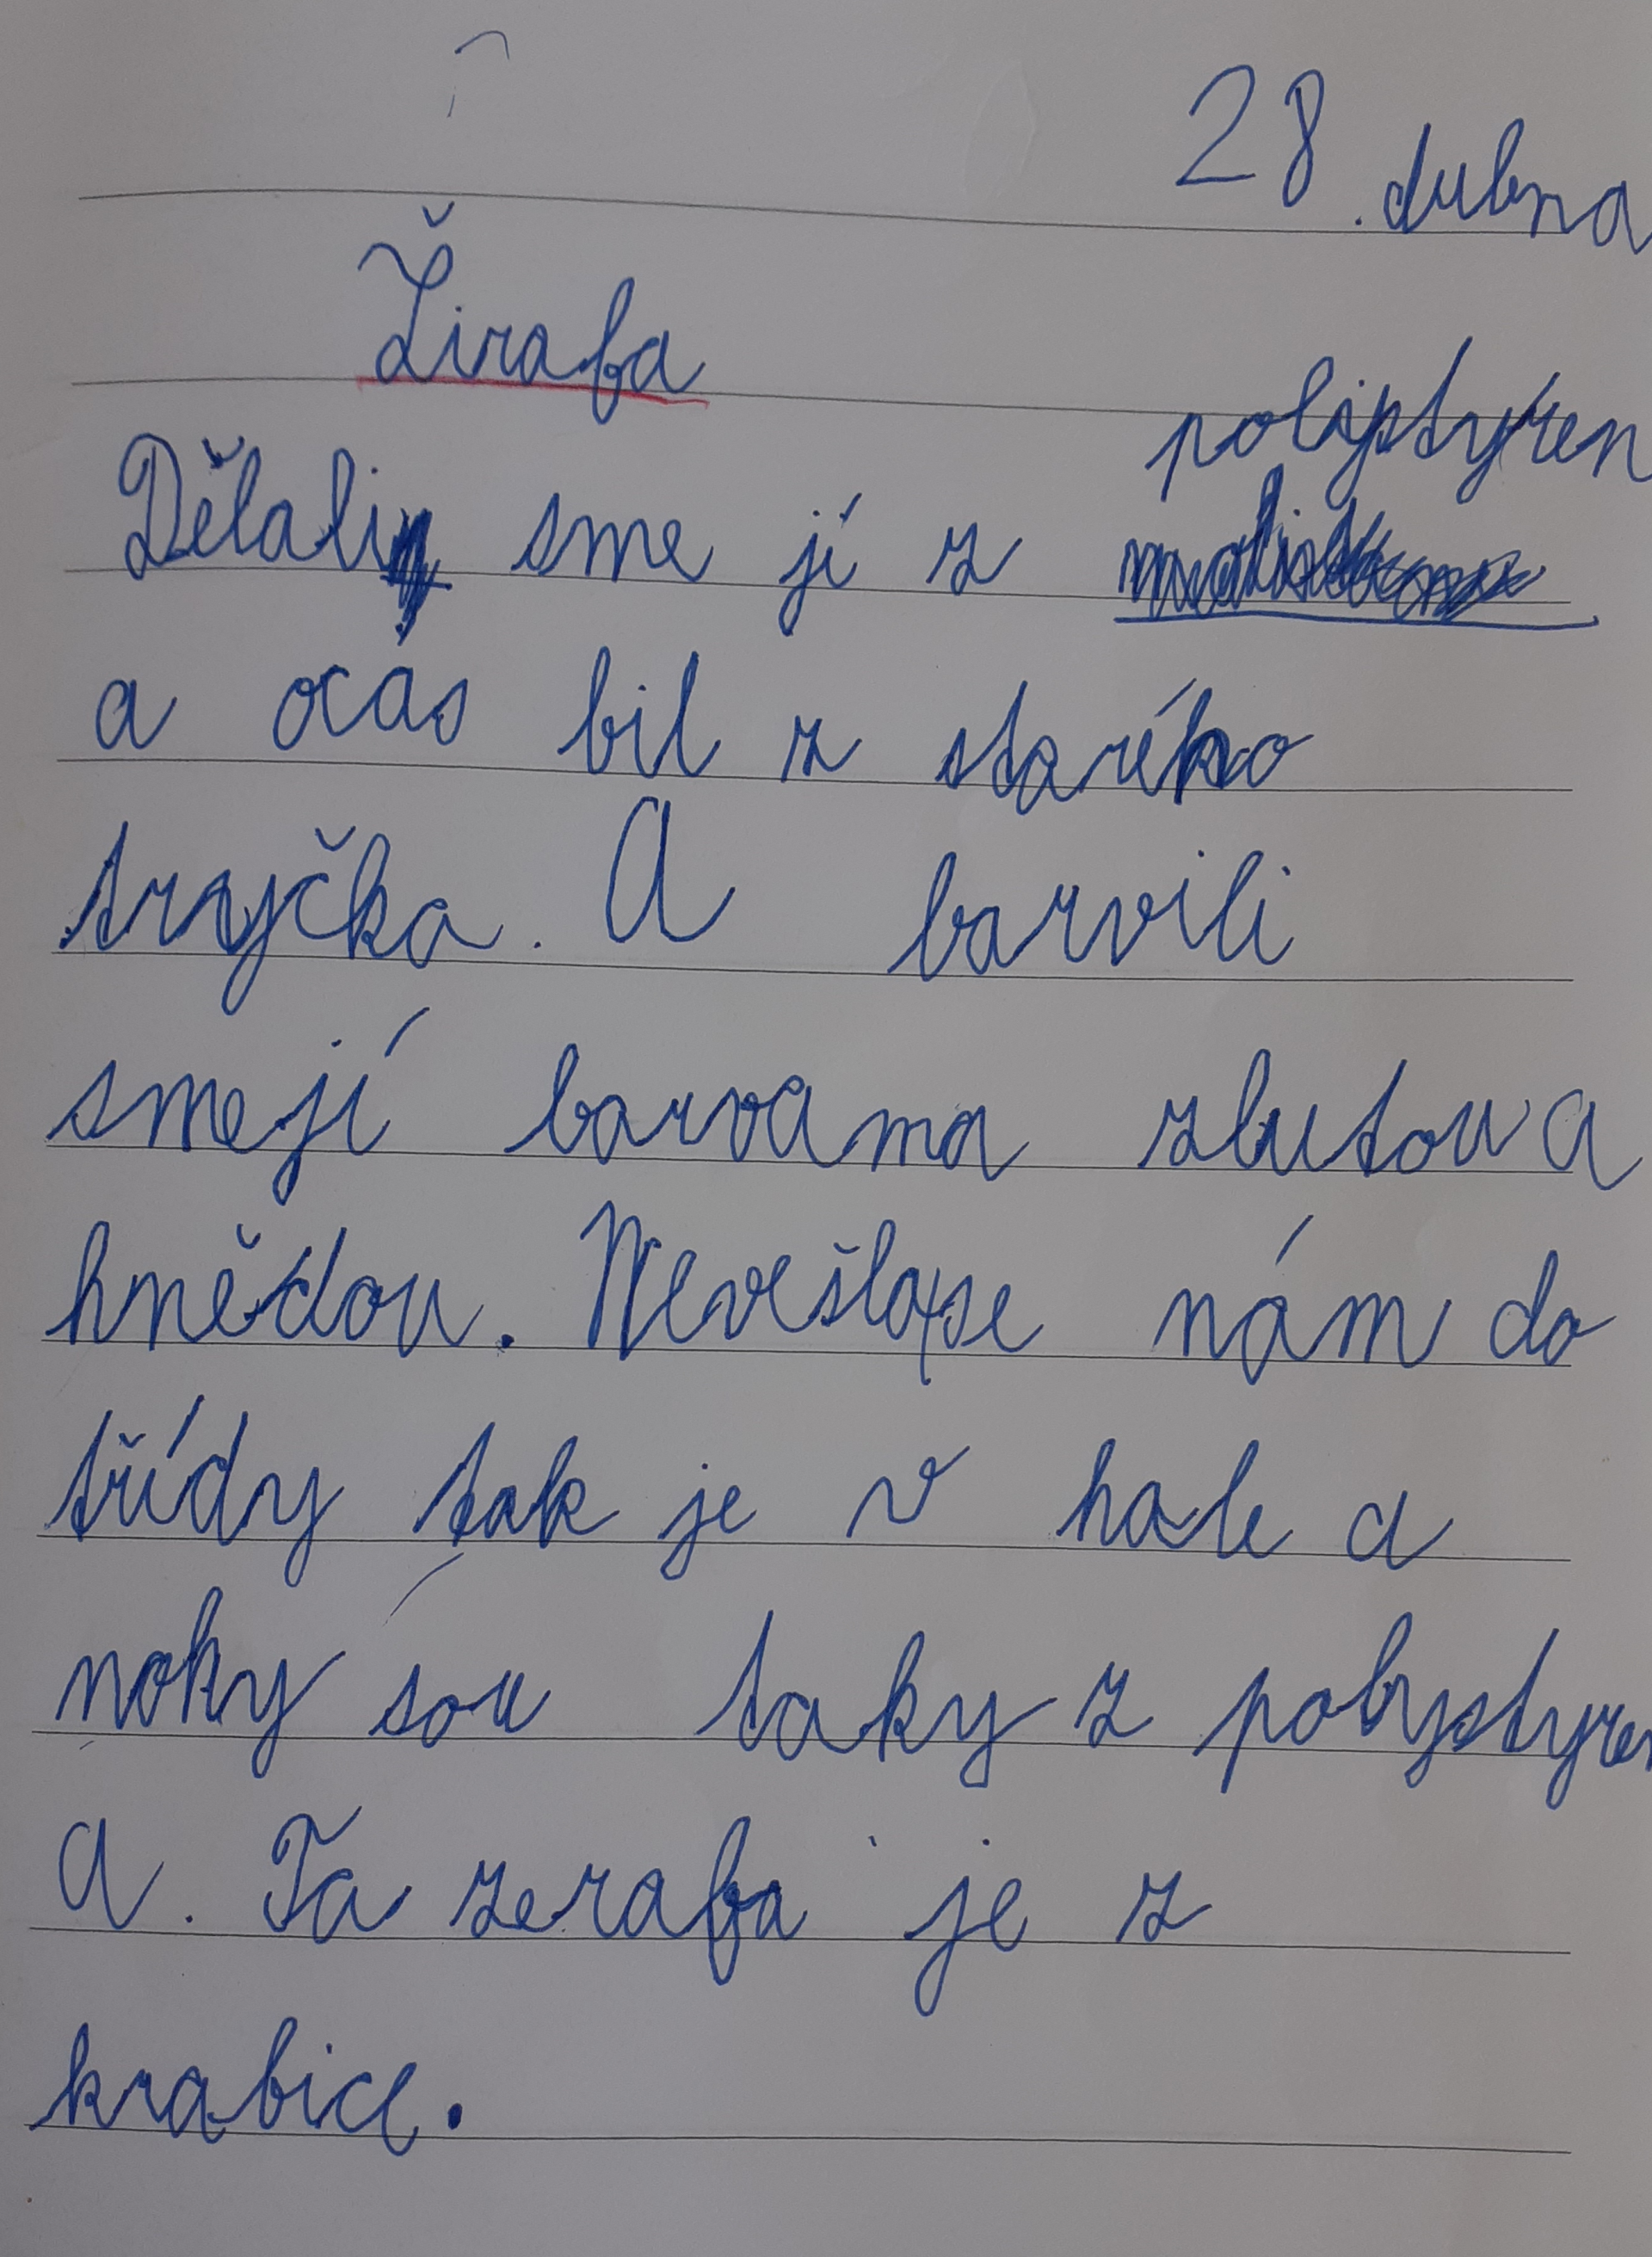 28. dubna
Žirafa
poliptyren
Dělali sme jí z
a ocás bil z starého
tryčka. A barvili
smejí barvama zlutou a
hnědou. Nevešla se nám do
třídy tak je v hale a
nohy sou taky z polystyren
a. Ta zerafa je z
krabice.